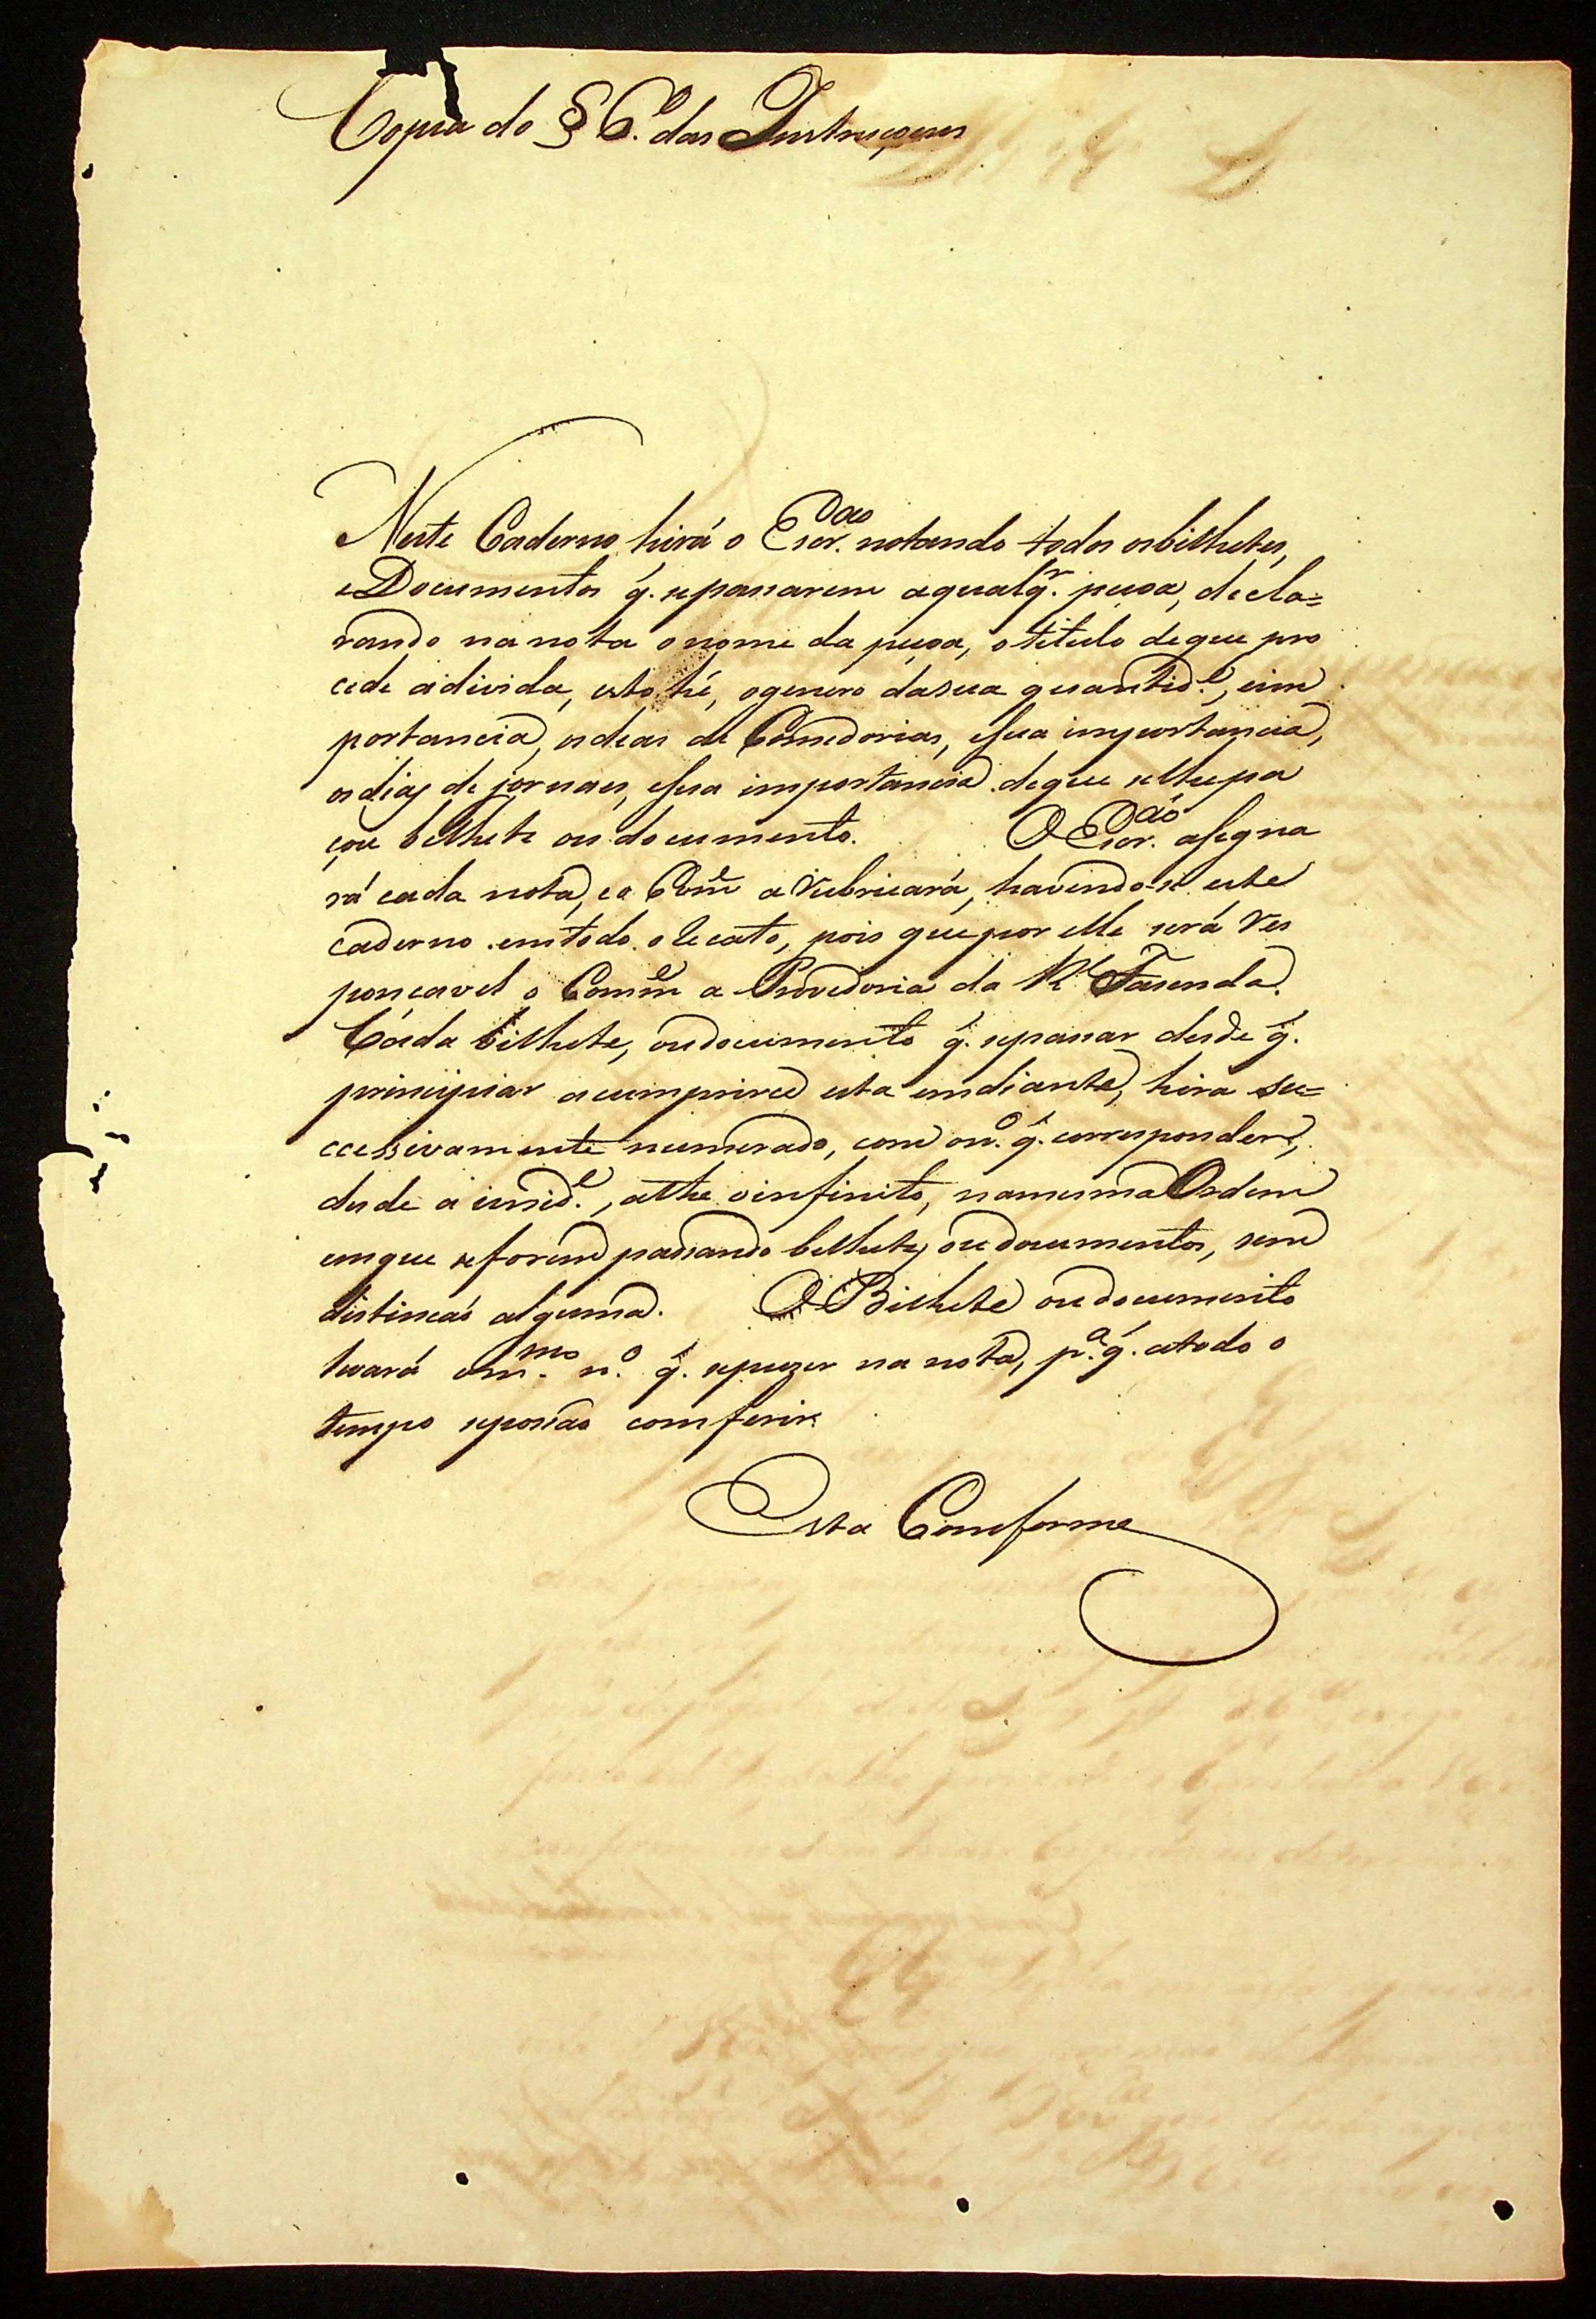 Copia do § 6.º das Instrucçoens
Neste Caderno hirá o Escr.ᵃᵒ notando todos os bilhetes,
e Documentos q̃. se passarem a qualq.ʳ pessoa, decla=
rando na nota o nome da pessoa, o titulo de que pro
cede a divida, isto hé, o genero da sua quantid.ᵉ, e im
portancia, os dias de Comedorias, e sua importancia,
os dias de jornaes, e sua importancia de que se lhe pa
çou bilhete ou documento. O Escr.ᵃᵒ asigna
rá cada nota, e o Com.ᵉ a rubricará, havendo-se este
caderno em todo o recato, pois que por elle será res
poncavel o Com.ᵉ a Provedoria da R.ˡ Fasenda.
Cada bilhete, ou documento q̃. se passar desde q̃.
principiar a cumprirce esta em diante, hira su=
ccessivamente numerado, com o n.º q̃. corresponder,
desde a unid.ᵉ, athe o infinito, na mesma Ordem
em que se forem passando bilhetes, ou documentos, sem
distincaõ alguma. O Bilhete ou documento
levará o m.ᵐᵒ n.º q̃. se puzer na nota, p.ᵃ q̃. a todo o
tempo se possaõ comferir.
Esta Comforme